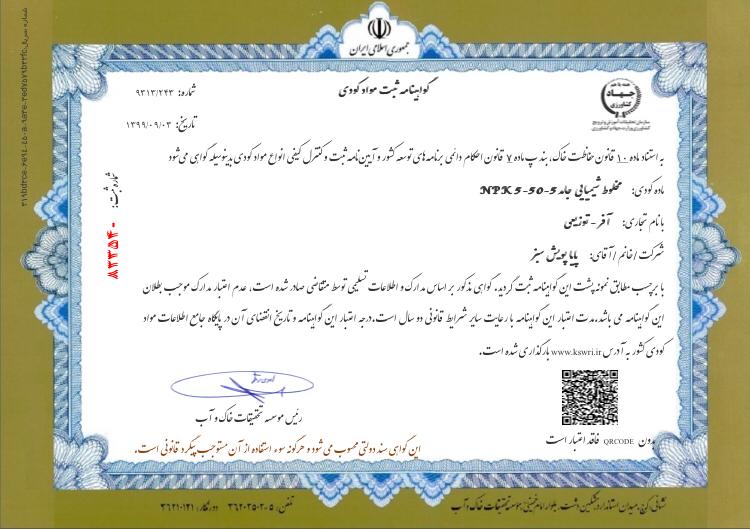 جمهوری اسلامی ایران
گواهینامه ثبت مواد کودی
شماره: ۹۳۱۳/۲۴۳
تاریخ: ۱۳۹۹/۰۹/۰۳
همه با هم
جهاد
کشاورزی
سازمان تحقیقات، آموزش و ترویج
کشاورزی وزارت جهاد کشاورزی
به استناد ماده ۱۰ قانون حفاظت خاک، بند پ ماده ۷ قانون احکام دائمی برنامه های توسعه کشور و آیین نامه ثبت و کنترل کیفی انواع مواد کودی بدینوسیله گواهی می شود
ماده کودی: مخلوط شیمیایی جامد NPK 5-50-5
با نام تجاری: آفر - توزیعی
شرکت / خانم / آقای: پاپا پویش سبز
با برچسب مطابق نمونه پشت این گواهینامه ثبت گردید. گواهی مذکور بر اساس مدارک و اطلاعات تسلیمی توسط متقاضی صادر شده است، عدم اعتبار مدارک موجب بطلان
این گواهینامه می باشد. مدت اعتبار این گواهینامه با رعایت سایر شرایط قانونی دو سال است. درجه اعتبار این گواهینامه و تاریخ انقضای آن در پایگاه جامع اطلاعات مواد
کودی کشور به آدرس www.kswri.ir بارگذاری شده است.
شماره ثبت: ۸۳۳۵۴۰
رئیس موسسه تحقیقات خاک و آب
بدون QRCODE فاقد اعتبار است
این گواهی سند دولتی محسوب می شود و هرگونه سوء استفاده از آن مستوجب پیگرد قانونی است.
نشانی: کرج، میدان استاندارد، مشکین دشت، بلوار امام خمینی، موسسه تحقیقات خاک و آب
تلفن: ۵-۳۶۲۰۲۵۰۲ دورنگار: ۳۶۲۱۰۱۲۱
شماره سریال: